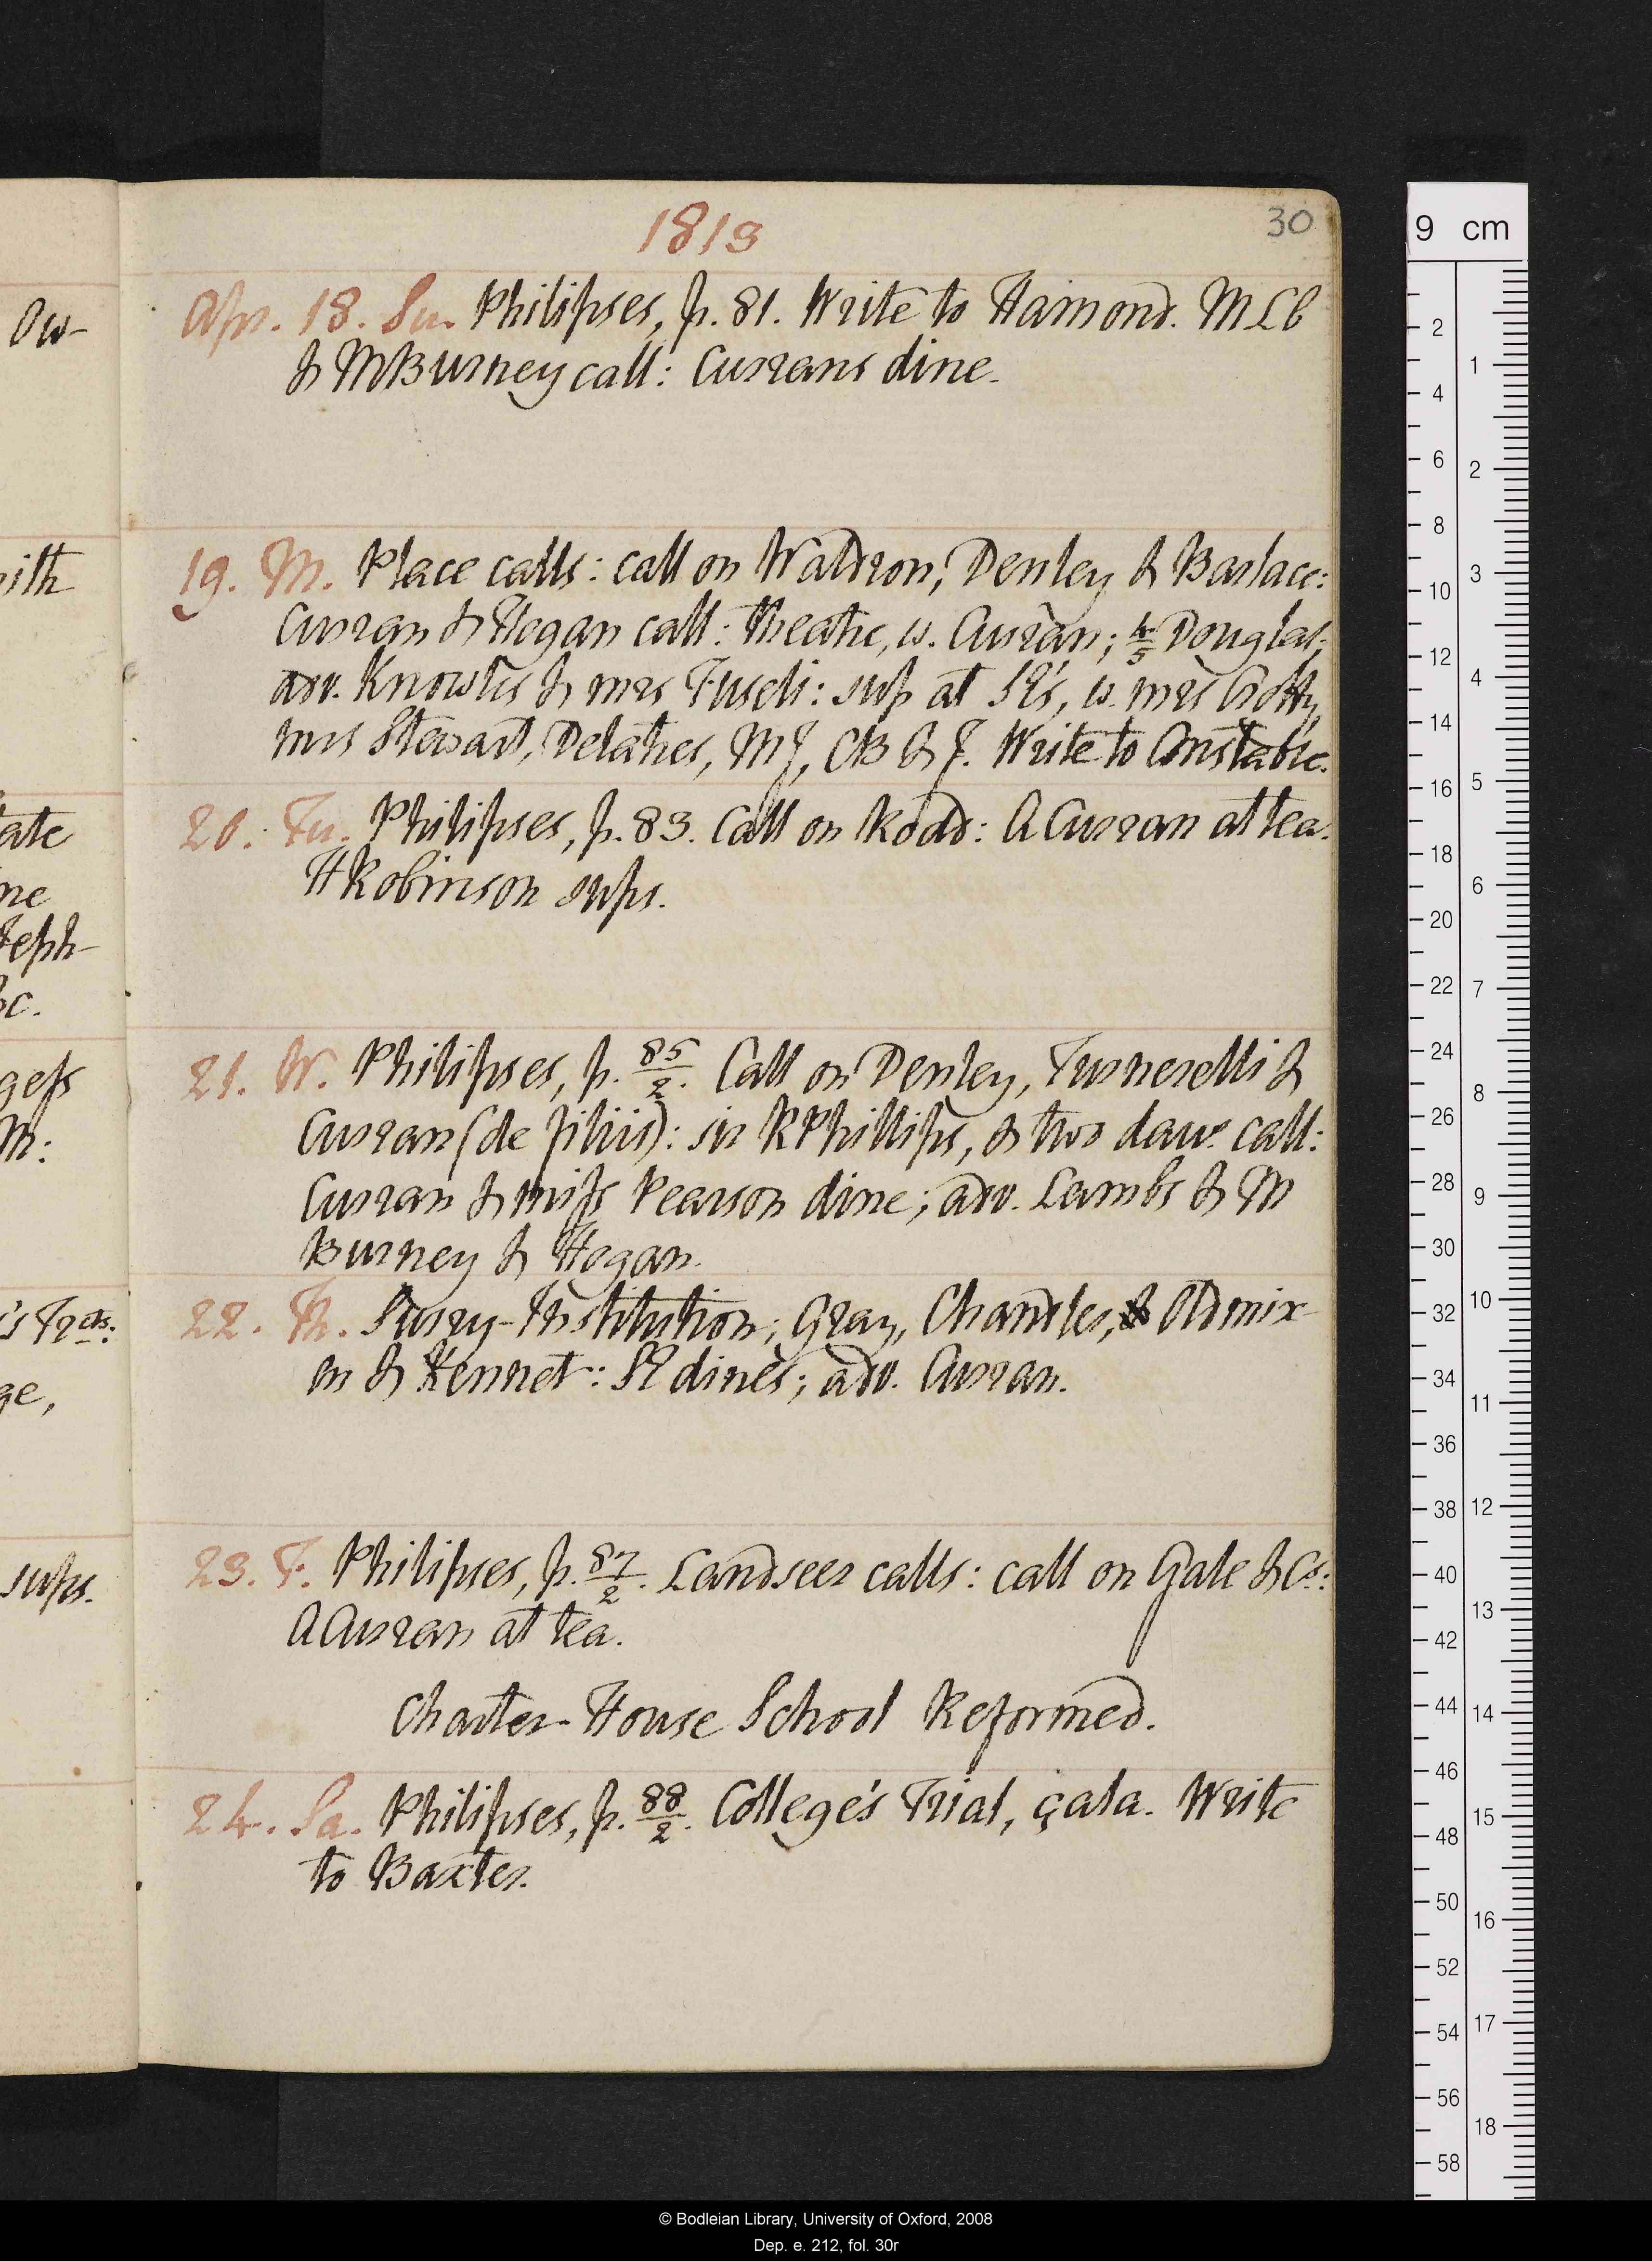 1813
30
Apr. 18. Su. Philipses, p. 81. Write to Hamond. MLB
& MBurney call: Currans dine.
19. M. Place calls: call on Waldron, Denley & Barlace:
Curran & Hogan call: theatre, w. Curran; 4/5 Douglas;
adv. Knowles & mrs Fuseli: sup at SE's, w. mrs
mrs Stewart, Delatres, MJ, CB & J. Write to Constable.
20. Tu. Philipses, p. 83. Call on Rodd: A Curran at tea.
H Robinson sups.
21. W. Philipses, p. 85/2. Call on Denley, Turnerelli &
Curran (de filiis): sir R Phillips, & two daurs. call:
Curran & miss Pearson dine; adv. Lambs & M
Burney & Hogan.
22. Th. Surry-Institution; Gray, Chandler, & Oldmix-
on & Kennet: SE dines; adv. Curran.
23. F. Philipses, p. 87/2. Landseer calls: call on Gale & Co:
A Curran at tea.
Charter-House School Reformed.
24. Sa. Philipses, p. 88/2. College's Trial, çala. Write
to Baxter.
Ow-
ith
ate
ne
teph-
&c.
gess
M:
's Frds:
ge,
sups.
9 cm
2
4
6
8
10
12
14
16
18
20
22
24
26
28
30
32
34
36
38
40
42
44
46
48
50
52
54
56
58
1
2
3
4
5
6
7
8
9
10
11
12
13
14
15
16
17
18
© Bodleian Library, University of Oxford, 2008
Dep. e. 212, fol. 30r